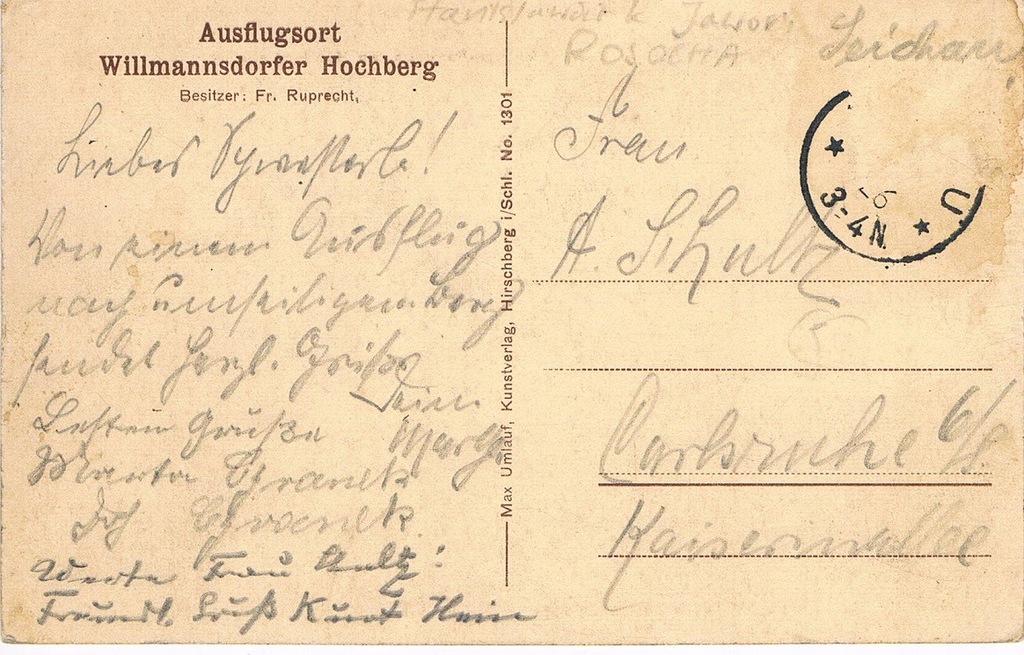 Ausflugsort
Willmannsdorfer Hochberg
Besitzer: Fr. Ruprecht,
Liebes Schwesterle!
Von einem Ausflug
nach umseitigem Berg
sendet herzl. Grüße
Dein
Besten Grüße
Marta
Werte Frau
Freundl. Gruß Kurt Hein
Max Umlauf, Kunstverlag, Hirschberg i/Schl. No. 1301
k Jawor
ROSOCHA
Seichau
Frau
A. Schultz
3-4N.
6
U.
Carlsruhe
Kaiserallee